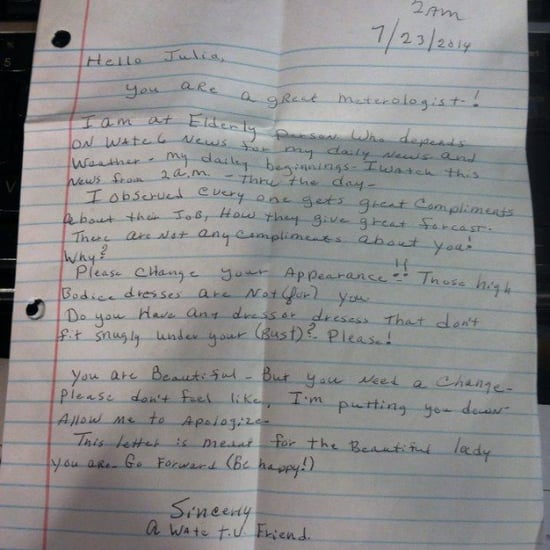 2am
7/23/2014
Hello Julia,
You are a great meterologist-!
I am at Elderly Person Who depends
ON WAte 6 News for my daily News and
Weather - my daily beginnings- I watch this
News from 2a.m. - Thru the day-
I observed every one gets great Compliments
about their Job, How they give great forcast.
There are Not any Compliments about you!
Why?
Please Change your Appearance!! Those high
Bodice dresses are Not (for) you
Do you Have any dress or dresess That don't
fit snugly under your (Bust)? Please!
You are Beautiful - But you Need a Change-
Please don't feel like, I'm putting you down-
Allow me to Apologize-
This letter is meant for the Beautiful lady
you are- Go Forward (Be happy!)
Sincerly
a WAte t.v. Friend.